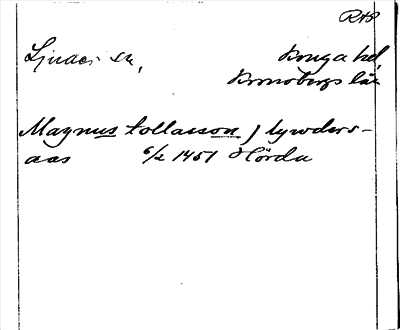 RAP
Ljuder sn,
Konga hd,
Kronobergs län
Magnus tollasson j lywders-
aas 6/2 1451 Hörda